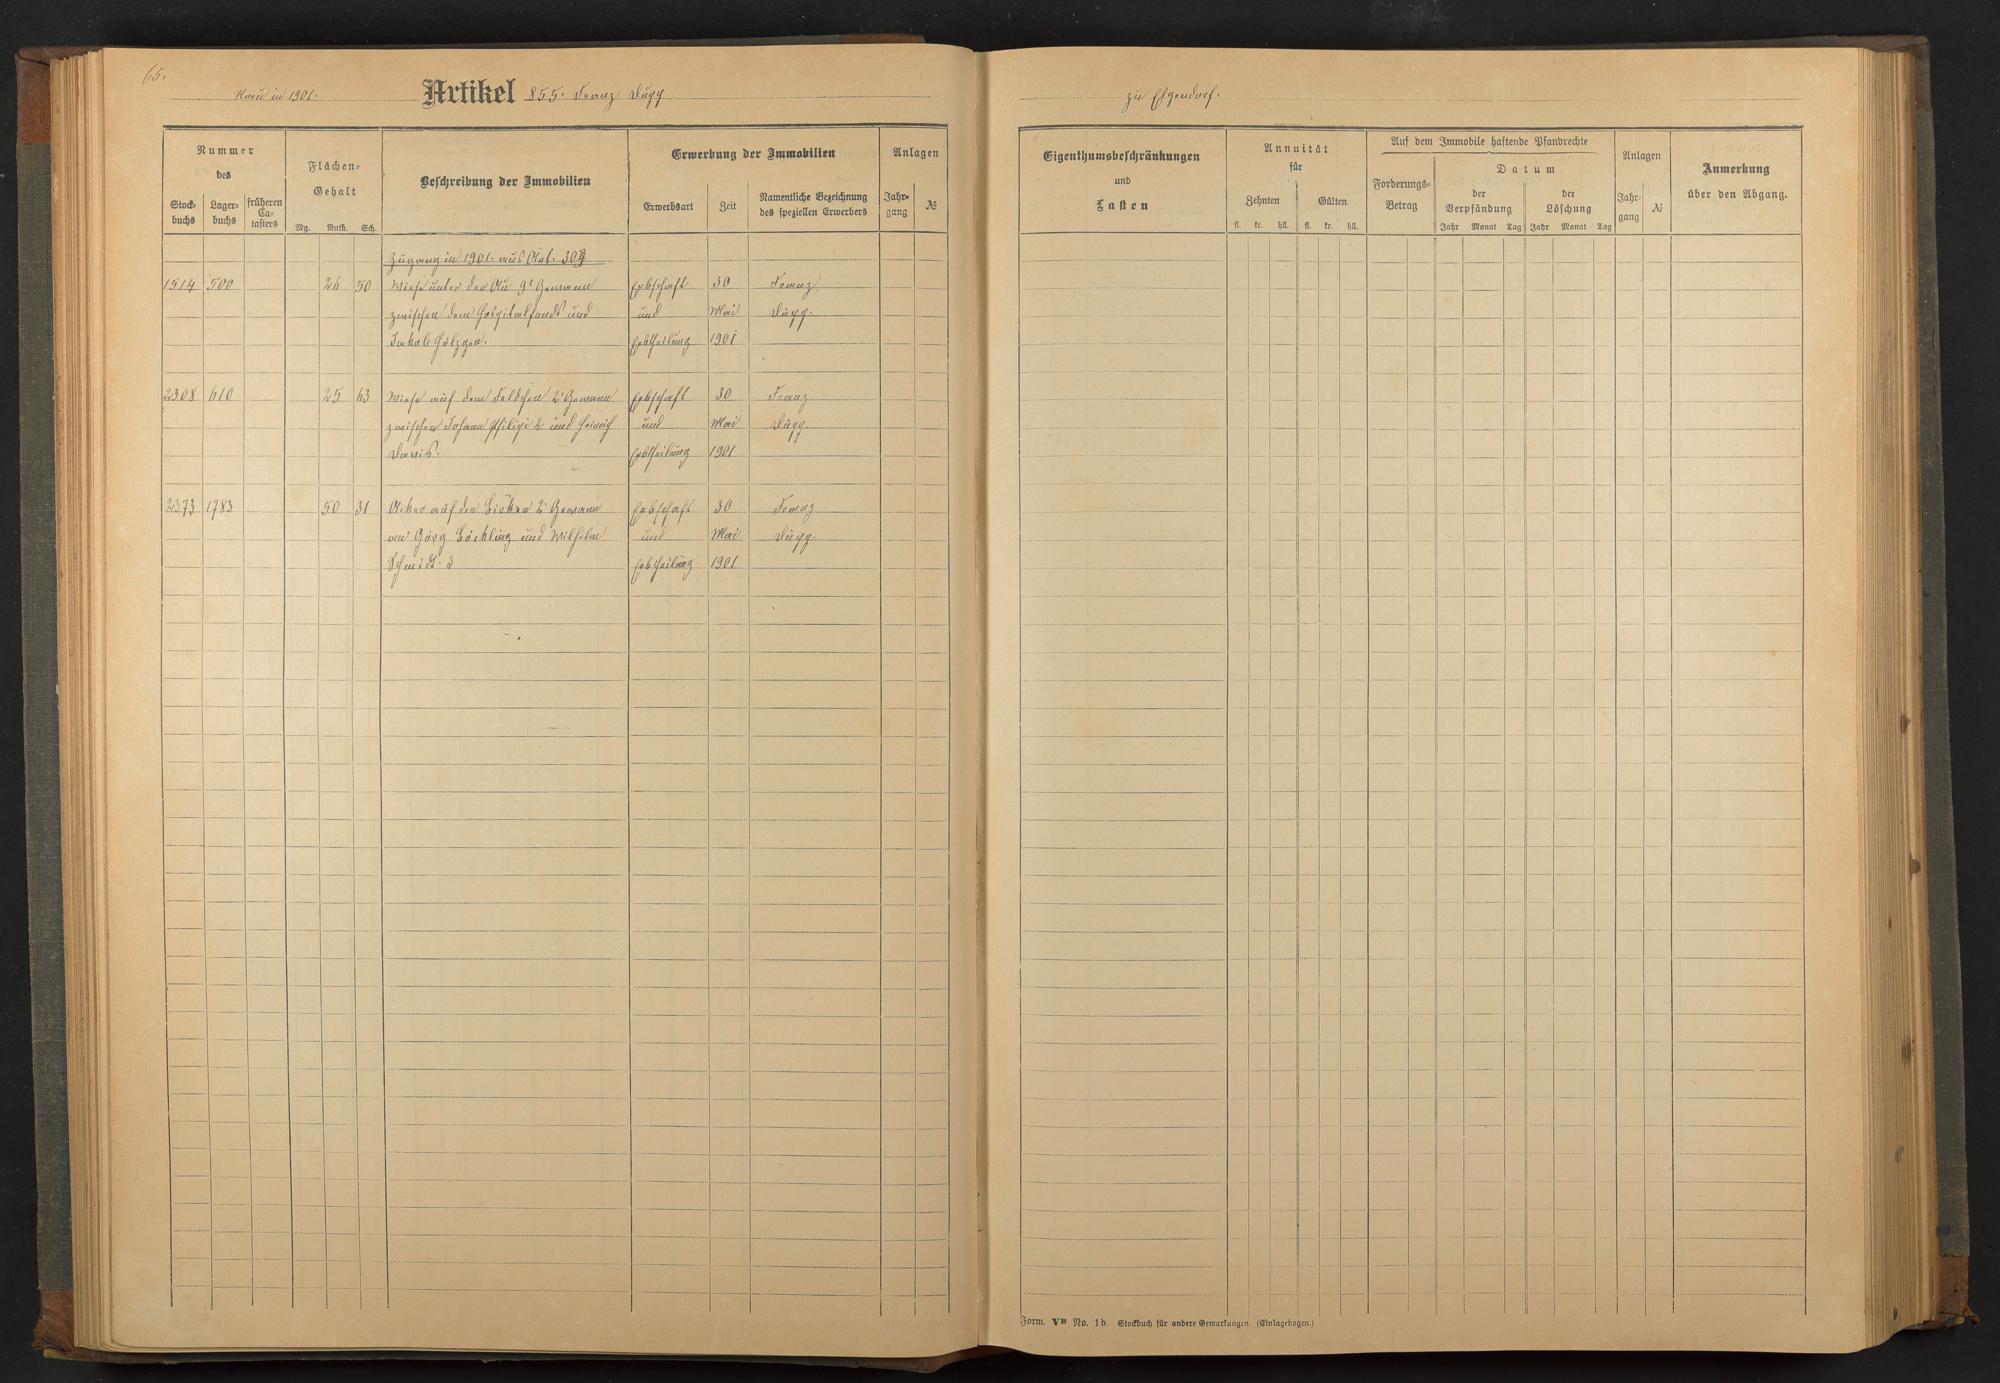 65.
Neu in 1901.
Artikel 855. Franz Dupp
Nummer
des
Stock-
buchs
Lager-
buchs
früheren
Ca-
tasters
Flächen-
Gehalt
Mg. Ruth. Sch.
Beschreibung der Immobilien
Erwerbung der Immobilien
Erwerbsart
Zeit
Namentliche Bezeichnung
des speziellen Erwerbers
Anlagen
Jahr-
gang
№
Zugang in 1901. aus Art. 303
1514 500 26 50 Wiese unter der Au 9r Gewann Erbschaft 30 Franz
zwischen dem Hospitalfonds und und Mai Dupp.
Jakob Hölzgen. Erbtheilung 1901
2308 610 25 63 Wiese auf dem Feldchen 2r Gewann Erbschaft 30 Franz
zwischen Johann Philipi 2 und Heinrich und Mai Dupp.
Davis. Erbtheilung 1901
2373 1783 50 31 Acker auf den Birken 2r Gewann Erbschaft 30 Franz
an Görg Böckling und Wilhelm und Mai Dupp.
Schmidt 3 Erbtheilung 1901
zu Elgendorf.
Eigenthumsbeschränkungen
und
Lasten
Annuität
für
Zehnten
fl. kr. hll.
Gülten
fl. kr. hll.
Auf dem Immobile haftende Pfandrechte
Forderungs-
Betrag
Datum
der
Verpfändung
Jahr Monat Tag
der
Löschung
Jahr Monat Tag
Anlagen
Jahr-
gang
№
Anmerkung
über den Abgang.
Form. VB No. 1b. Stockbuch für andere Gemarkungen. (Einlagebogen.)